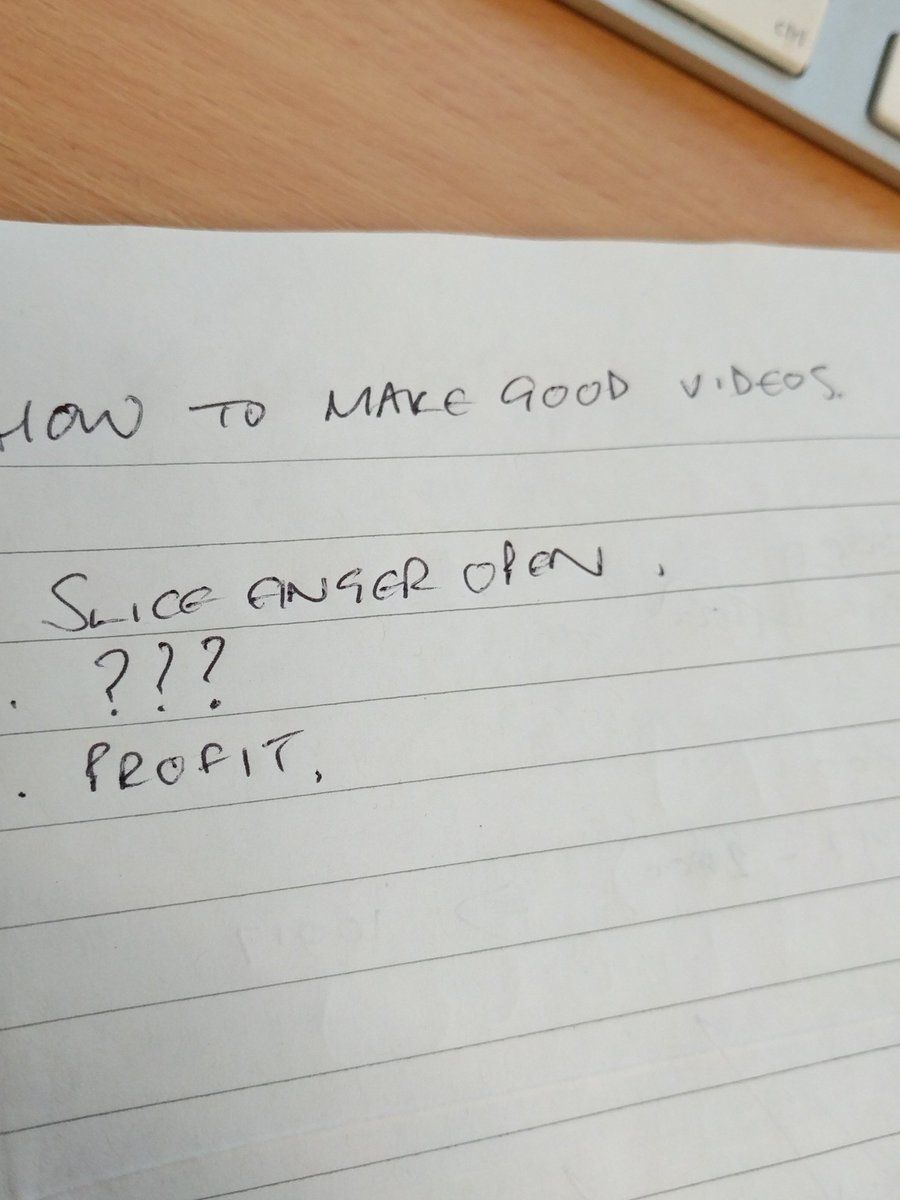 ctrl
HOW TO MAKE GOOD VIDEOS.
SLICE FINGER OPEN.
. ???
. PROFIT.